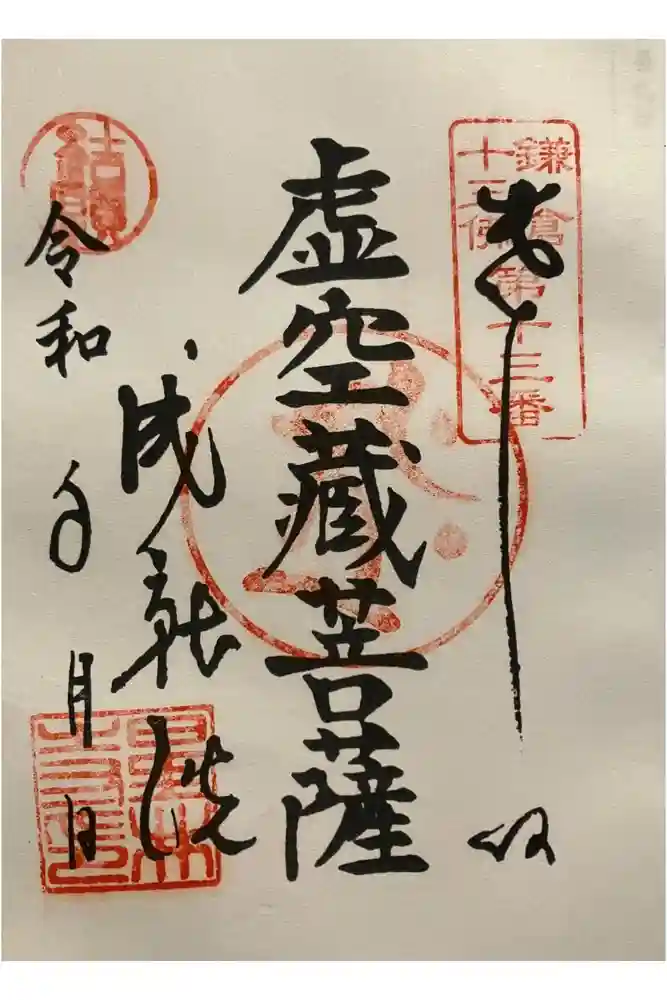 鎌倉
十三佛
第十三番
奉拝
虚空藏菩薩
成就院
結願
令和 年 月 日